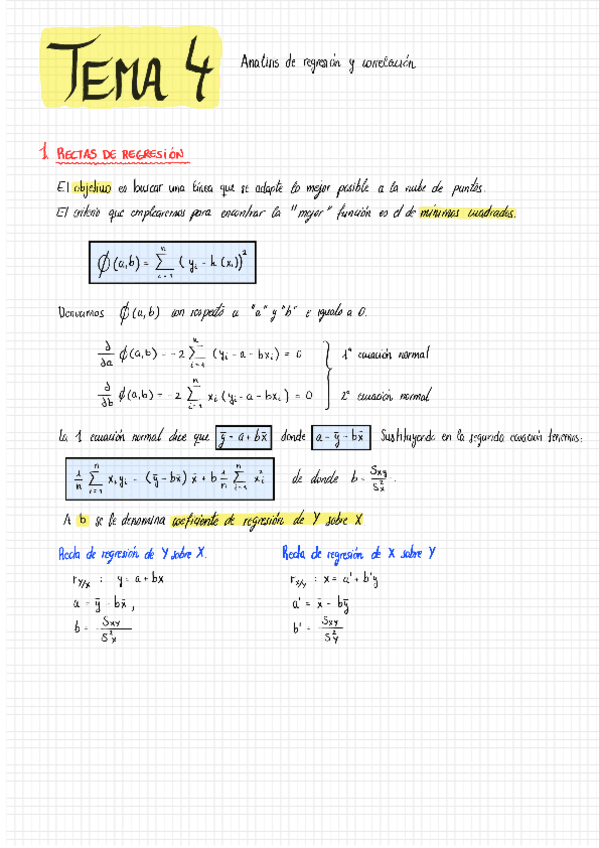 TEMA 4 Analisis de regresión y correlación
1 RECTAS DE REGRESIÓN
El objetivo es buscar una línea que se adapte lo mejor posible a la nube de puntos.
El criterio que emplearemos para encontrar la "mejor" función es el de mínimos cuadrados.
ϕ(a,b) = ∑_{i=1}^{n} (y_i - h(x_i))^2
Derivamos ϕ(a,b) con respecto a "a" y "b" e igualo a 0.
∂/∂a ϕ(a,b) = -2 ∑_{i=1}^{n} (y_i - a - bx_i) = 0 } 1ª ecuación normal
∂/∂b ϕ(a,b) = -2 ∑_{i=1}^{n} x_i (y_i - a - bx_i) = 0 2ª ecuación normal
La 1 ecuación normal dice que ȳ = a + bx̄ donde a = ȳ - bx̄ Sustituyendo en la segunda ecuación tenemos:
1/n ∑_{i=1}^{n} x_i y_i = (ȳ - bx̄) x̄ + b 1/n ∑_{i=1}^{n} x_i^2 de donde b = S_xy / S_x^2 .
A b se le denomina coeficiente de regresión de Y sobre X
Recta de regresión de Y sobre X. Recta de regresión de X sobre Y
r_{Y/X} : y = a + bx r_{X/Y} : x = a' + b'y
a = ȳ - bx̄ , a' = x̄ - bȳ
b = S_XY / S^2_X b' = S_XY / S^2_Y